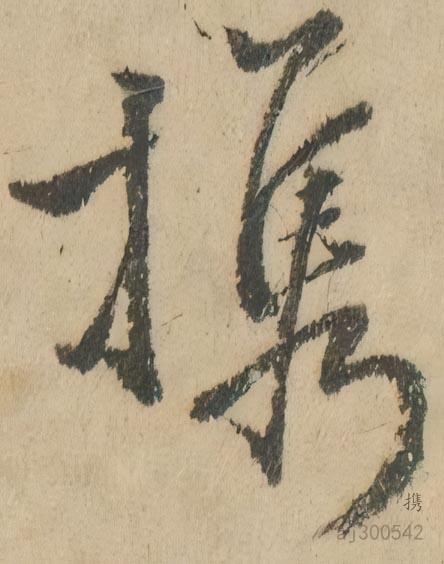 携
携
aj300542